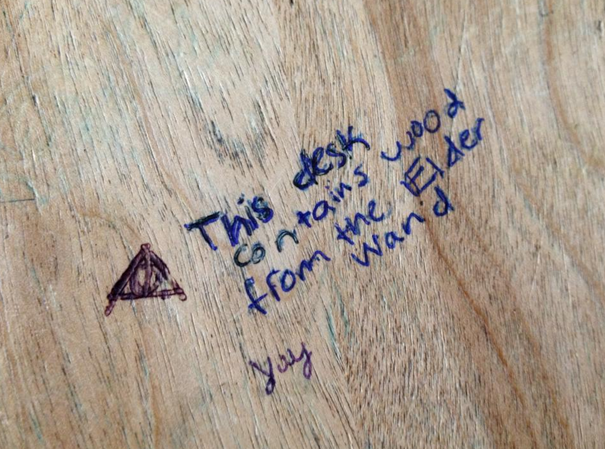 This desk
contains wood
from the Elder
wand
yay